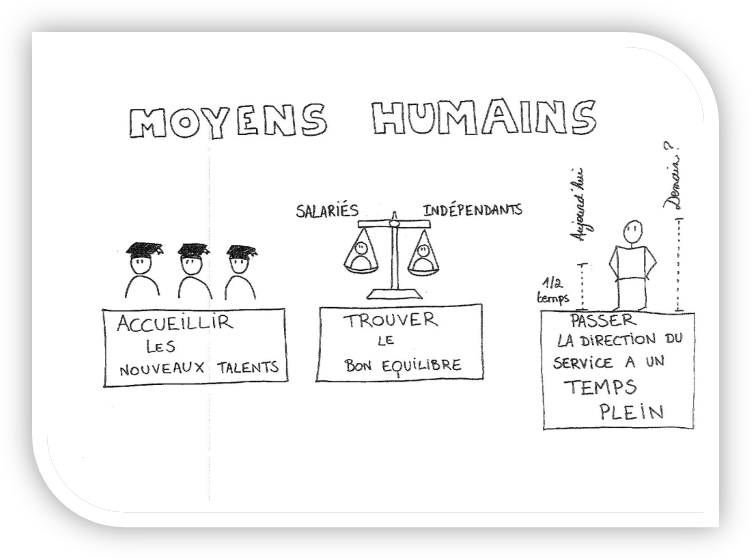 MOYENS HUMAINS
ACCUEILLIR
LES
NOUVEAUX TALENTS
SALARIÉS
INDÉPENDANTS
TROUVER
LE
BON EQUILIBRE
Aujourd'hui
Demain?
1/2
temps
PASSER
LA DIRECTION DU
SERVICE A UN
TEMPS
PLEIN